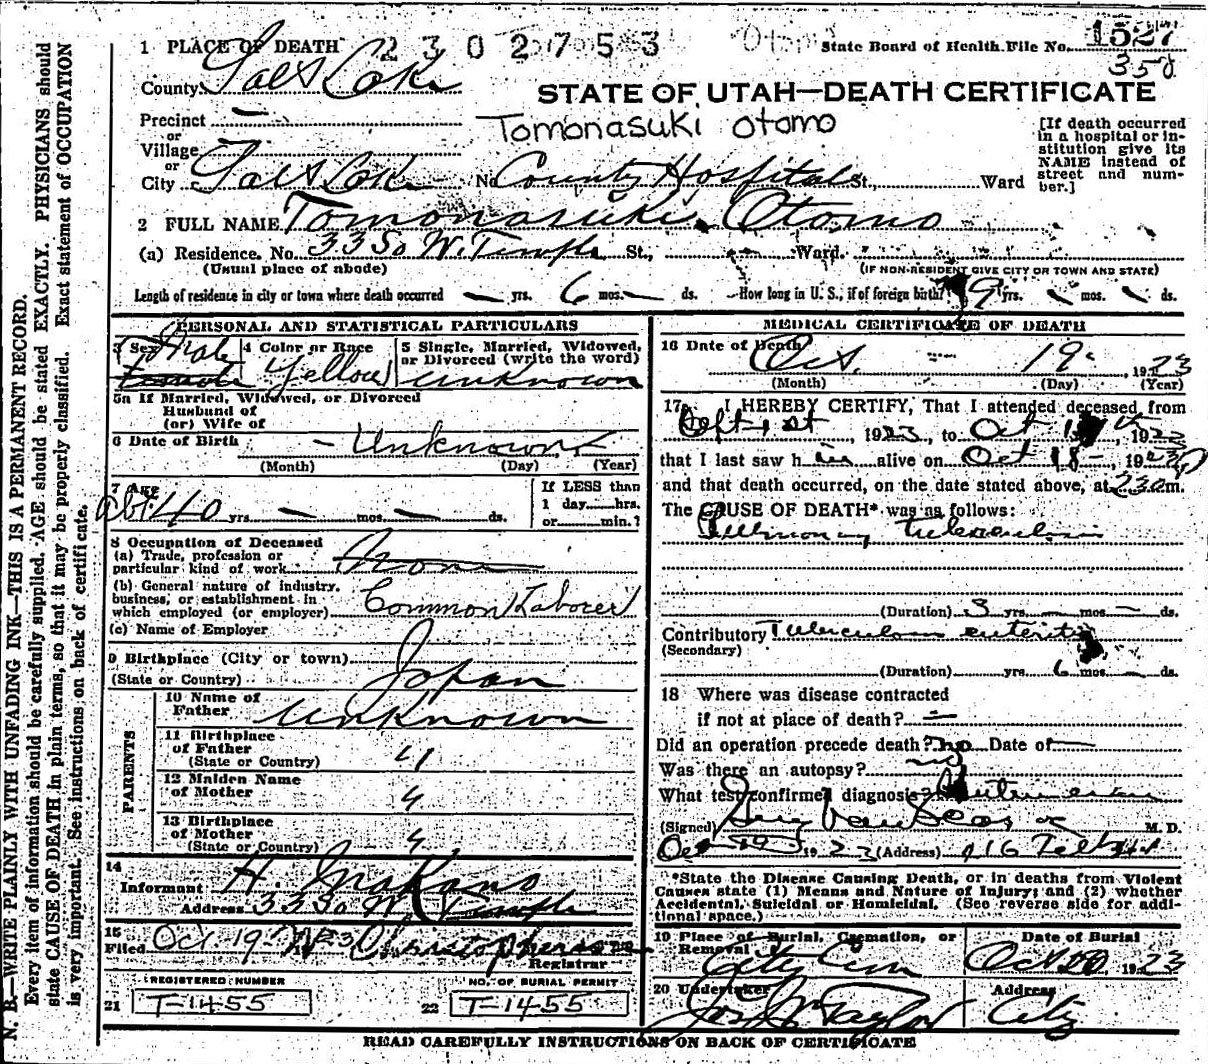 1 PLACE OF DEATH 2302753 State Board of Health File No. 1527
County Salt Lake 358
STATE OF UTAH—DEATH CERTIFICATE
Precinct —
or
Village
or
City Salt Lake No. County Hospital St., Ward
Tomonasuki Otomo
[If death occurred
in a hospital or in-
stitution give its
NAME instead of
street and num-
ber.]
2 FULL NAME Tomonasuki Otomo
(a) Residence. No. 33 So W. Temple St., Ward.
(Usual place of abode) (IF NON-RESIDENT GIVE CITY OR TOWN AND STATE)
Length of residence in city or town where death occurred — yrs. 6 mos. — ds. How long in U. S., if of foreign birth? 19 yrs. — mos. — ds.
PERSONAL AND STATISTICAL PARTICULARS
3 Sex Male 4 Color or Race Yellow 5 Single, Married, Widowed,
or Divorced (write the word)
Unknown
5a If Married, Widowed, or Divorced
Husband of
(or) Wife of
6 Date of Birth — Unknown —
(Month) (Day) (Year)
7 Age abt. 40 yrs. — mos. — ds. If LESS than
1 day hrs.
or min.?
8 Occupation of Deceased
(a) Trade, profession or
particular kind of work None
(b) General nature of industry,
business, or establishment in
which employed (or employer) Common Laborer
(c) Name of Employer
9 Birthplace (City or town)
(State or Country) Japan
PARENTS
10 Name of
Father Unknown
11 Birthplace
of Father
(State or Country) "
12 Maiden Name
of Mother "
13 Birthplace
of Mother
(State or Country) "
14
Informant H. Nakano
Address 33 So W. Temple
15
Filed Oct. 19 1923
Registrar
REGISTERED NUMBER NO. OF BURIAL PERMIT
21 T-1455 22 T-1455
MEDICAL CERTIFICATE OF DEATH
16 Date of Death Oct. — 19 , 1923
(Month) (Day) (Year)
17 I HEREBY CERTIFY, That I attended deceased from
Sept 1st , 1923, to Oct , 1923
that I last saw him alive on Oct 18 , 1923
and that death occurred, on the date stated above, at 230 m.
The CAUSE OF DEATH* was as follows:
Pulmonary tuberculosis
(Duration) 3 yrs. — mos. — ds.
Contributory Tuberculous enteritis
(Secondary)
(Duration) yrs. 6 mos. — ds.
18 Where was disease contracted
if not at place of death? —
Did an operation precede death? No Date of —
Was there an autopsy? no
What test confirmed diagnosis
(Signed) M. D.
Oct 19 1923 (Address)
*State the Disease Causing Death, or in deaths from Violent
Causes state (1) Means and Nature of Injury; and (2) whether
Accidental, Suicidal or Homicidal. (See reverse side for addi-
tional space.)
19 Place of Burial, Cremation, or
Removal City Cem Date of Burial
Oct 20 , 1923
20 Undertaker Taylor Address City
READ CAREFULLY INSTRUCTIONS ON BACK OF CERTIFICATE
N. B.—WRITE PLAINLY WITH UNFADING INK—THIS IS A PERMANENT RECORD.
Every item of information should be carefully supplied. AGE should be stated EXACTLY. PHYSICIANS should
state CAUSE OF DEATH in plain terms, so that it may be properly classified. Exact statement of OCCUPATION
is very important. See instructions on back of certificate.